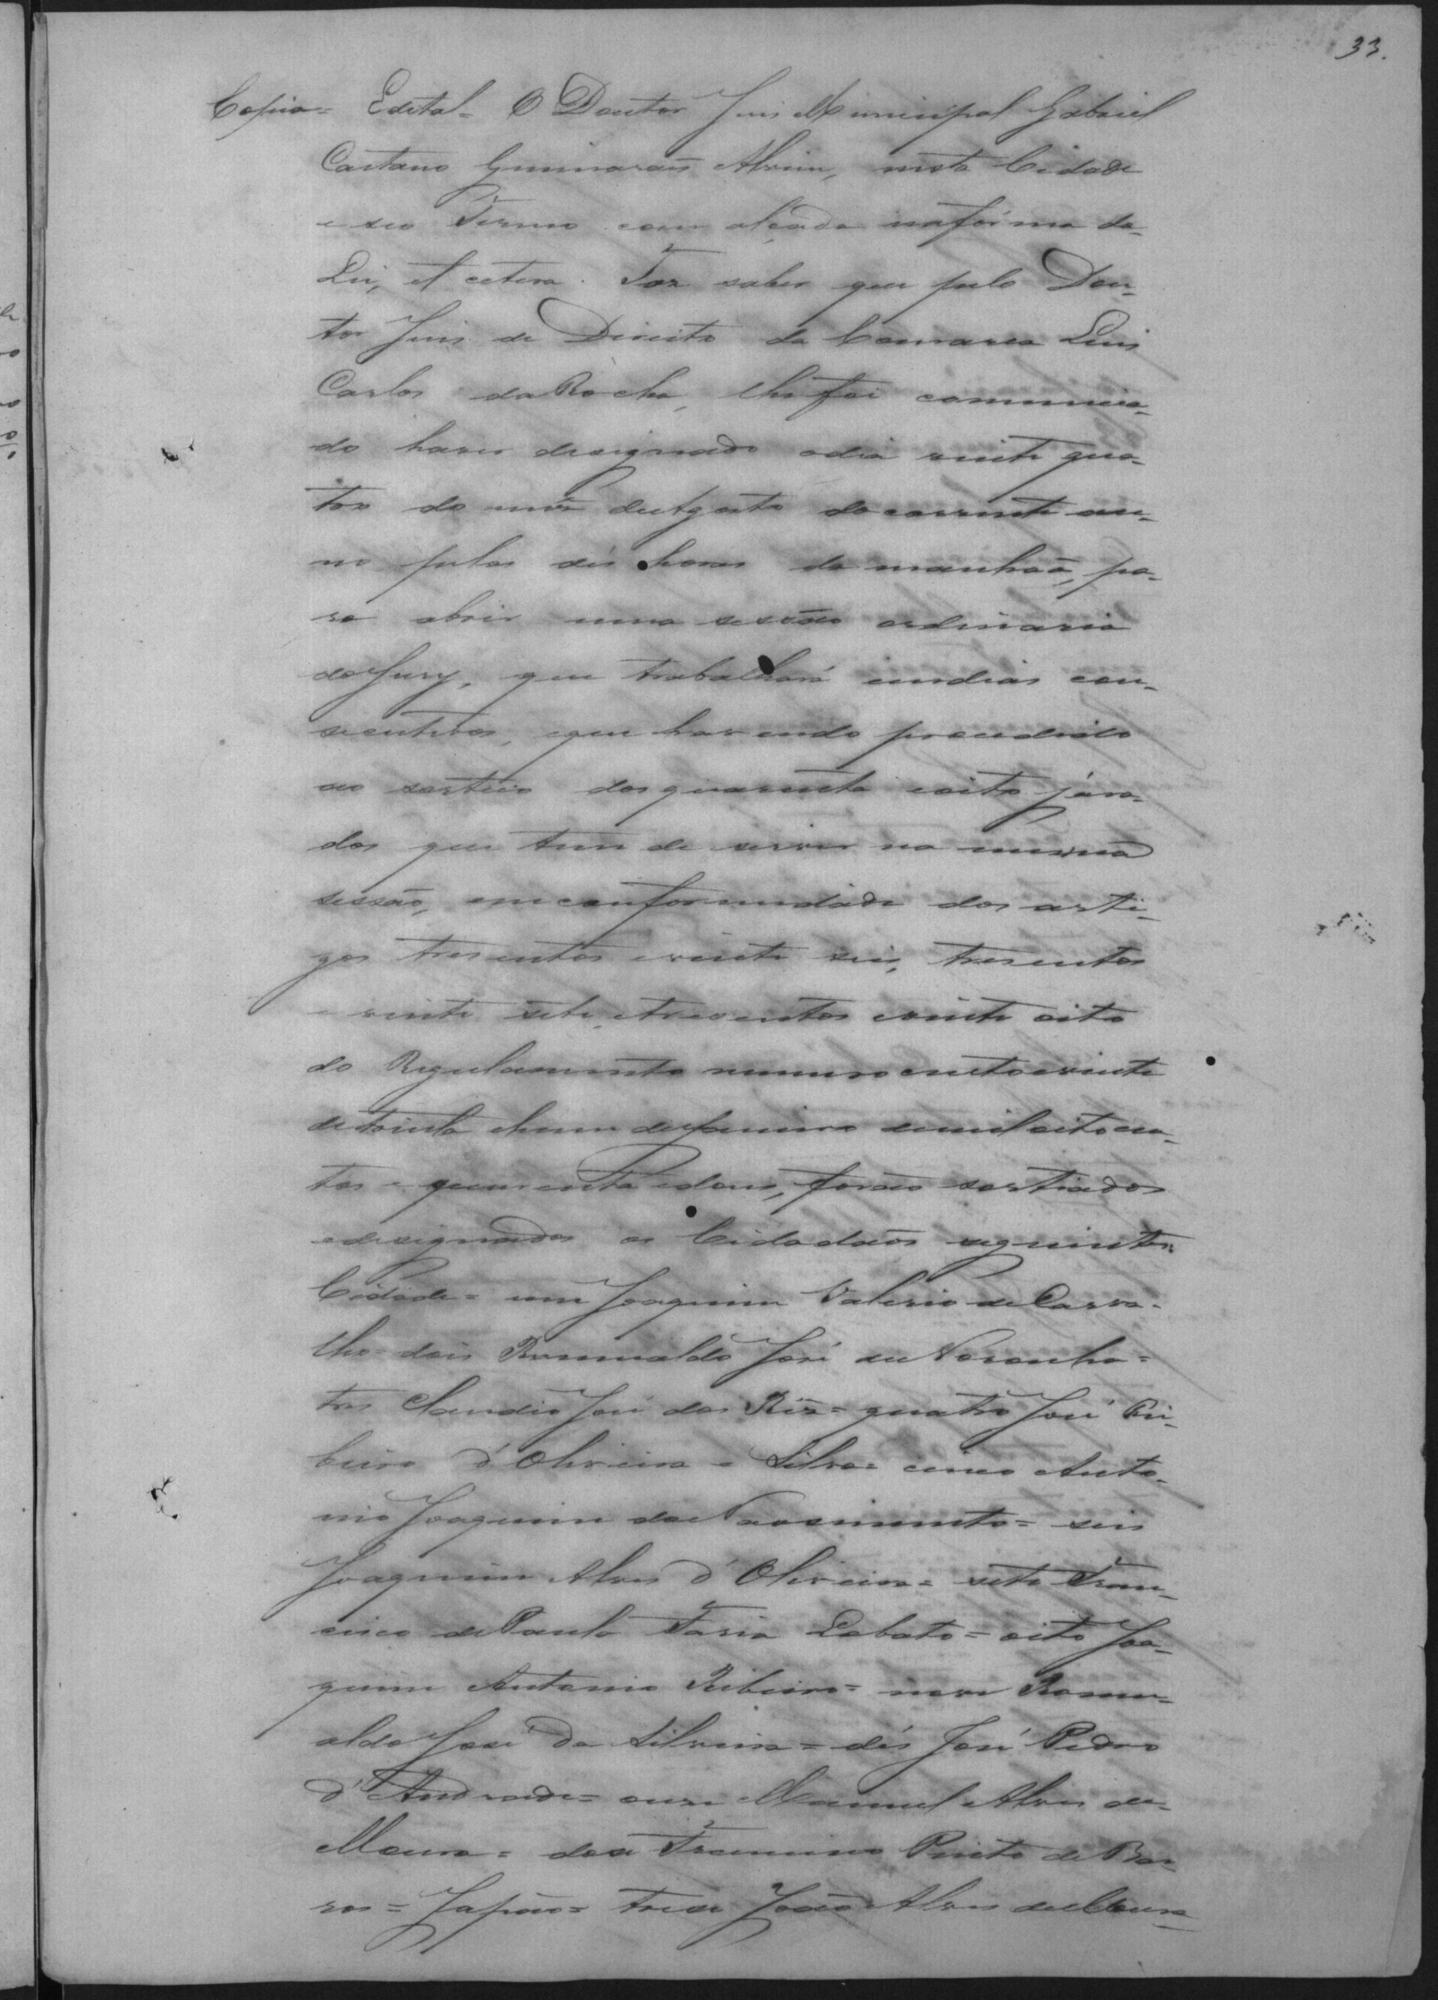 33.
Copia = Edital = O Doutor Juis Municipal Gabriel
Caetano Guimarães Alvim, nesta Cidade
e seo Termo com alçada na fórma da
Lei, et cetera. Faz saber que pelo Dou-
tor Juis de Direito da Comarca Luis
Carlos da Rocha, lhe foi communica-
do haver designado o dia vinte qua-
tro do mês de Agosto do corrente an-
no pelas dés horas da manhaã, pa-
ra abrir uma sessão ordinaria
do Jury, que trabalhará em dias con-
secutivos, e que havendo procedido
ao sorteio dos quarenta e oito jura-
dos que tem de servir na mesma
sessão, em conformidade dos arti-
gos tresentos e vinte seis, tresentos
e vinte sete, e tresentos e vinte oito
do Regulamento numero cento e vinte
de trinta e hum de Janeiro de mil oito cen-
tos e quarenta e dous, forão sorteados
e designados os Cidadãos seguintes:
Cidade = um Joaquim Valerio de Carva-
lho = dois Romualdo José de Noronha =
tres Claudio José dos Reis = quatro José Ri-
beiro d'Oliveira e Silva = cinco Anto-
nio Joaquim do Nascimento = seis
Joaquim Alves d'Oliveira = sete Fran-
cisco de Paula Faria Lobato = oito Joa-
quim Antonio Ribeiro = nove Romu-
aldo José da Silveira = dés José Pedro
d'Andrade = onze Manuel Alves de
Moura = dose Francisco Pinto de Bar-
ros = Japão = treze João Alves de Moura